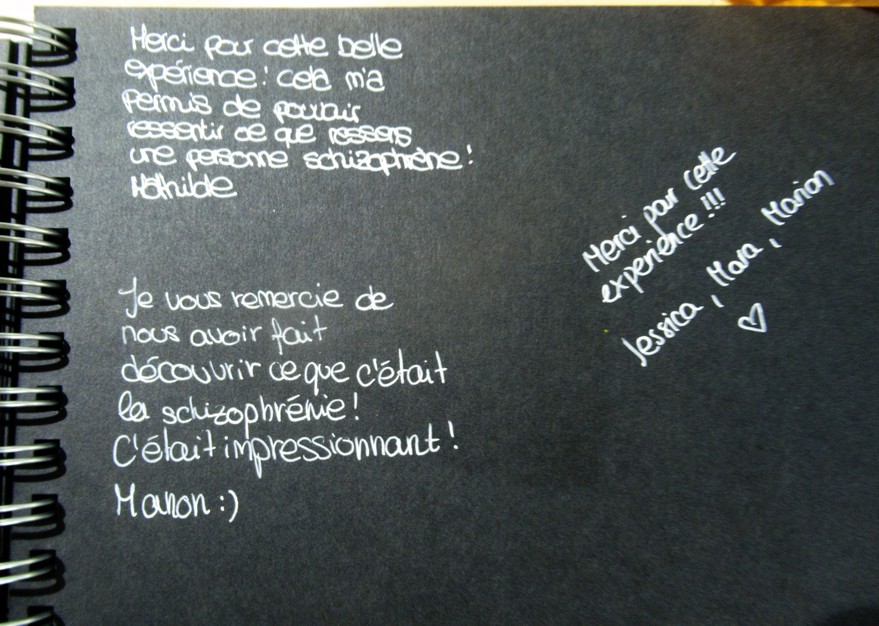 Merci pour cette belle
expérience! cela m'a
permis de pouvoir
ressentir ce que ressens
une personne schizophrène!
Mathilde
Je vous remercie de
nous avoir fait
découvrir ce que c'était
la schizophrénie!
C'était impressionnant!
Manon :)
Merci pour cette
experience!!!
Jessica, Mara, Marion
♡